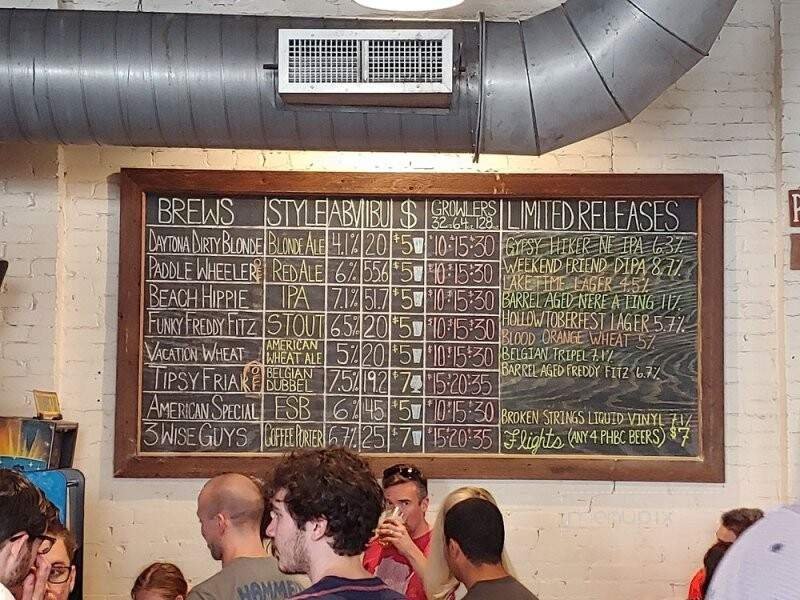 BREWS STYLE ABV IBU $ GROWLERS 32oz 64oz 128oz LIMITED RELEASES
DAYTONA DIRTY BLONDE BLONDE ALE 4.1% 20 $5 $10 $15 $30
PADDLE WHEELER RED ALE 6% 55.6 $5 $10 $15 $30
BEACH HIPPIE IPA 7.1% 51.7 $5 $10 $15 $30
FUNKY FREDDY FITZ STOUT 6.5% 20 $5 $10 $15 $30
VACATION WHEAT AMERICAN WHEAT ALE 5% 20 $5 $10 $15 $30
TIPSY FRIAR BELGIAN DUBBEL 7.5% 19.2 $7 $15 $20 $35
AMERICAN SPECIAL ESB 6% 45 $5 $10 $15 $30
3 WISE GUYS COFFEE PORTER 6.7% 25 $7 $15 $20 $35
GYPSY HIKER NE IPA 6.3%
WEEKEND FRIEND DIPA 8.7%
LAKE TIME LAGER 4.5%
BARREL AGED NERE A TING 11%
HOLLOWTOBERFEST LAGER 5.7%
BLOOD ORANGE WHEAT 5%
BELGIAN TRIPEL 7.1%
BARREL AGED FREDDY FITZ 6.7%
BROKEN STRINGS LIQUID VINYL 7.1%
Flights (ANY 4 PHBC BEERS) $7